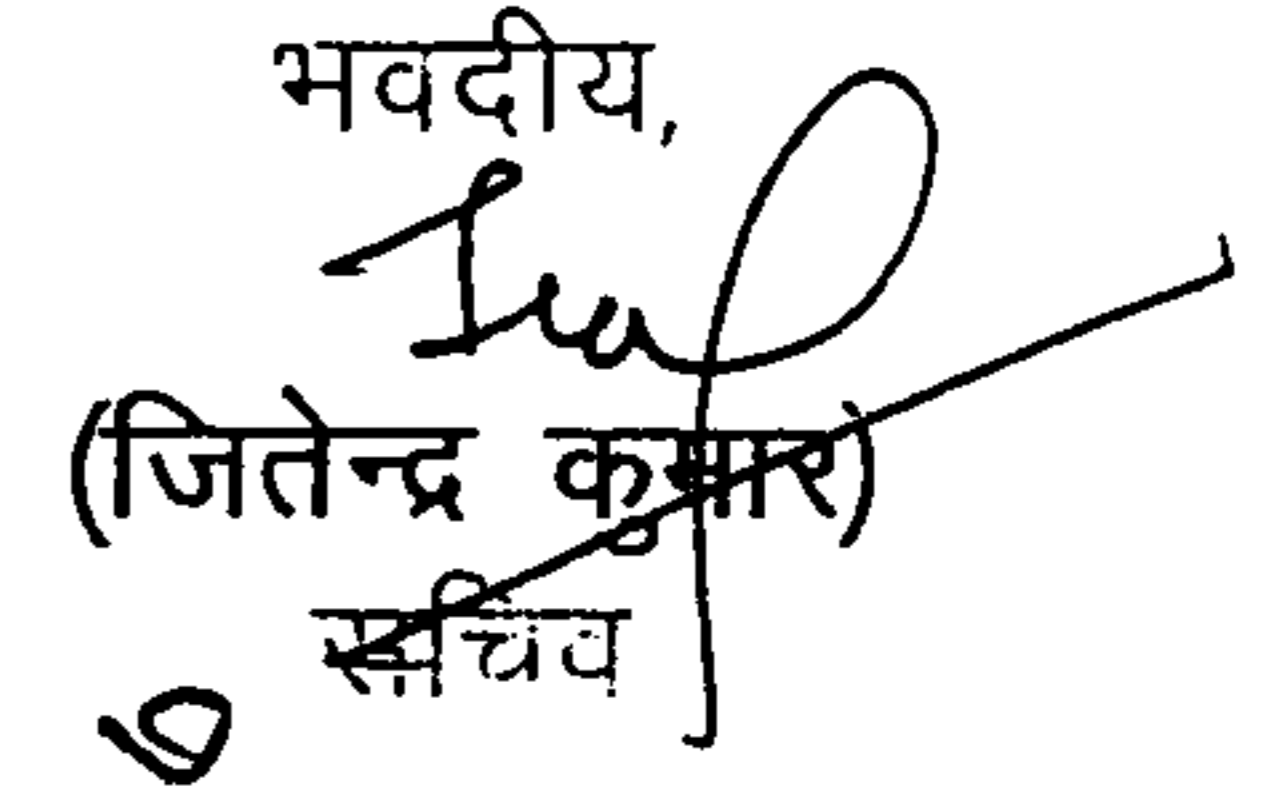 भवदीय,
(जितेन्द्र कुमार)
सचिव